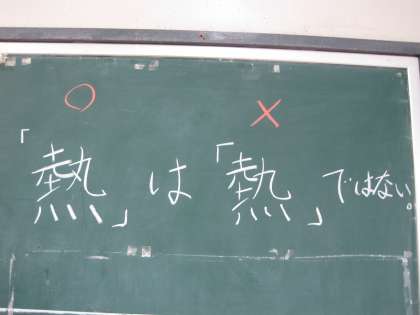 ○ ×
「熱」は「熱」ではない。